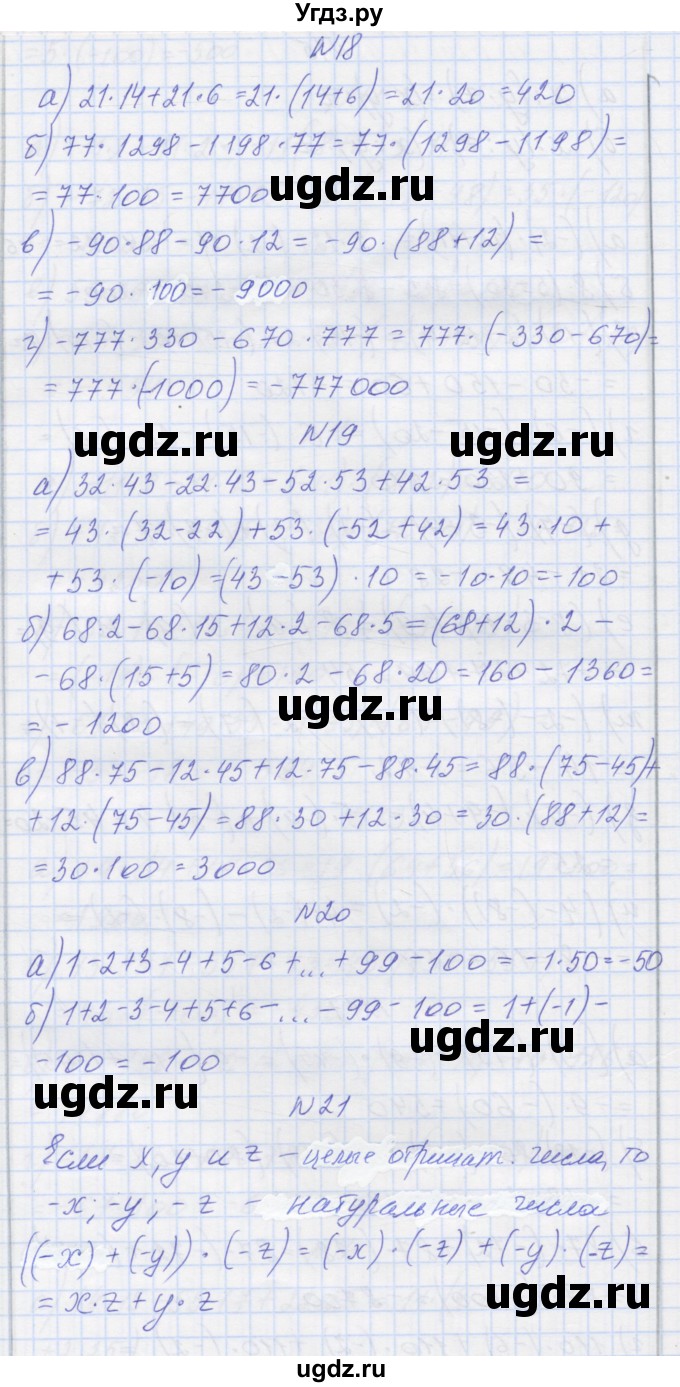 Угдз.ру
N18
а) 21·14+21·6 =21·(14+6)=21·20 =420
б) 77·1298-1198·77=77·(1298-1198)=
=77·100=7700
ugdz.ru
в) -90·88-90·12= -90·(88+12) =
= -90·100=-9000
г) -777·330-670·777=777·(-330-670)=
=777·(-1000) = -777000
N19
ugdz.ru ugdz.ru
а) 32·43-22·43-52·53+42·53 =
= 43·(32-22)+53·(-52+42)=43·10+
+53·(-10)=(43-53)·10 = -10·10=-100
б) 68·2-68·15+12·2-68·5=(68+12)·2-
-68·(15+5)=80·2-68·20=160-1360=
ugdz.ru
= -1200
в) 88·75-12·45+12·75-88·45=88·(75-45)+
+12·(75-45)=88·30+12·30=30·(88+12)=
=30·100=3000
ugdz.ru
N20
а) 1-2+3-4+5-6+...+99-100=-1·50=-50
б) 1+2-3-4+5+6-...-99-100=1+(-1)-
ugdz.ru
-100=-100
ugdz.ru
N21
Если x, y и z - целые отрицат. числа, то
-x; -y; -z - натуральные числа
((-x)+(-y))·(-z)=(-x)·(-z)+(-y)·(-z)=
ugdz.ru
=x·z+y·z
ugdz.ru